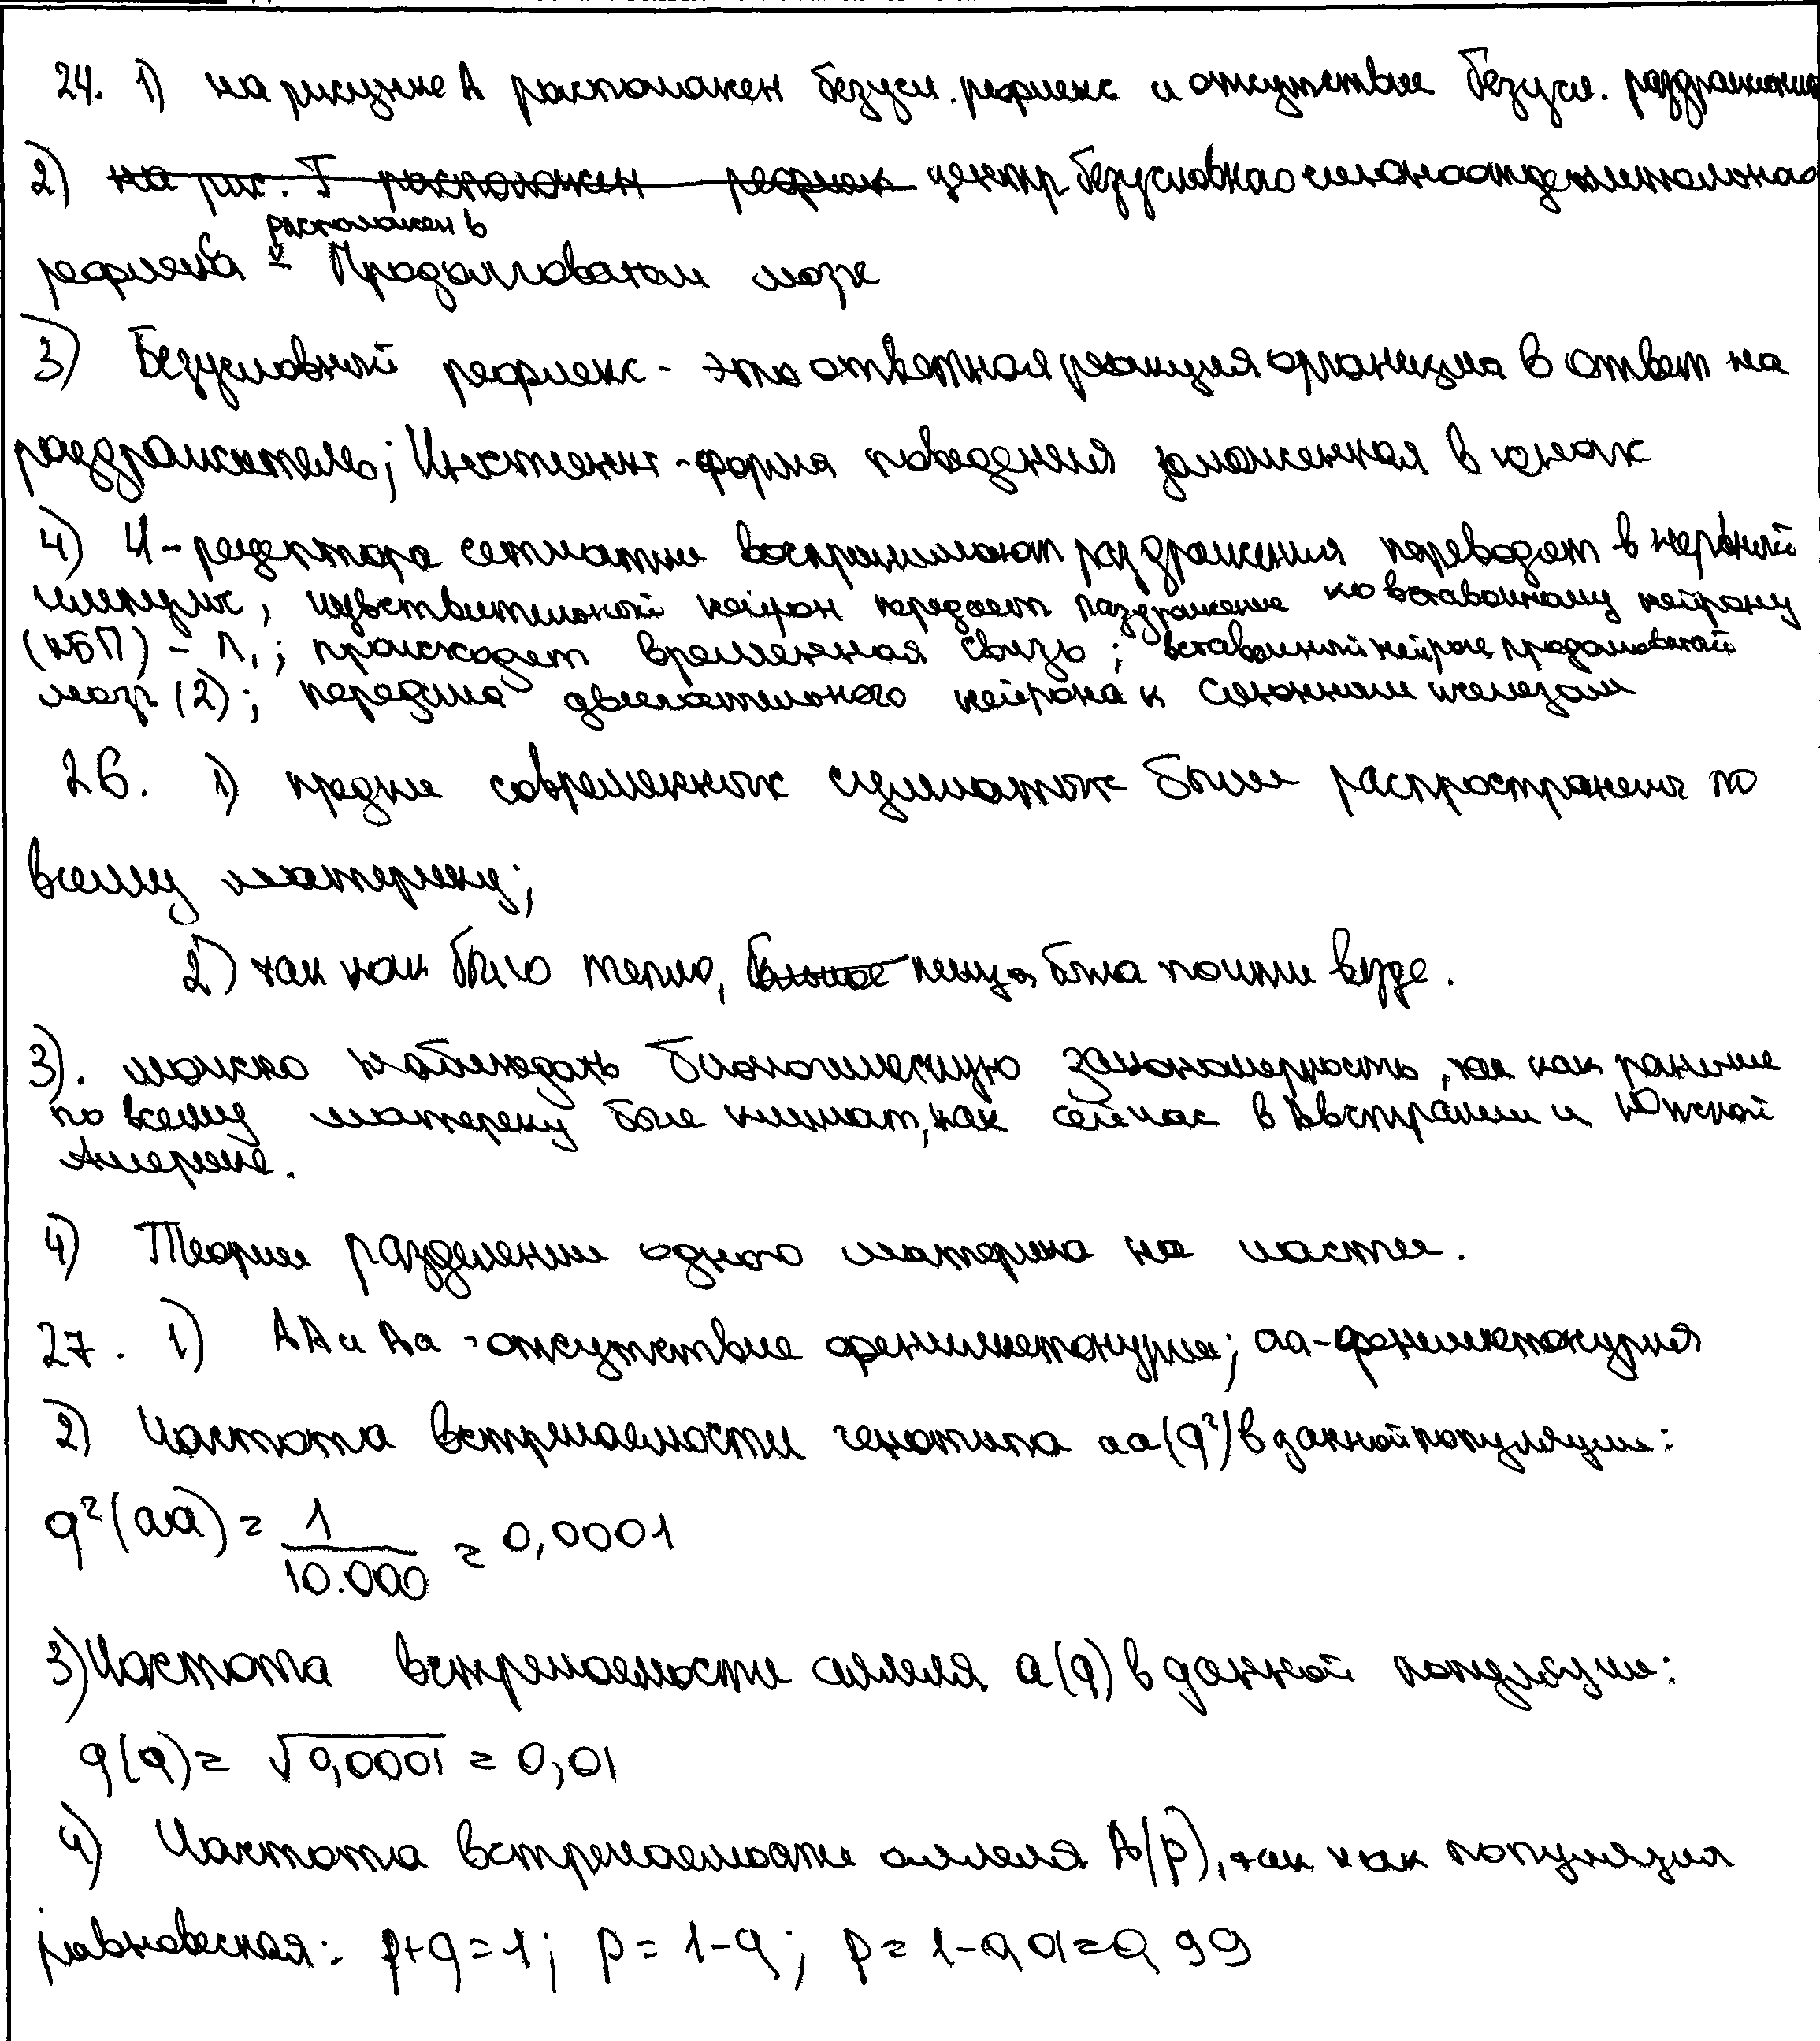 24. 1) на рисунке А расположен безусл. рефлекс и отсутствие безусл. раздражения
2) на рис. Г расположен рефлек центр безусловного слюноотделительного
расположен в
рефлекса - Продолговатом мозге
3) Безусловный рефлекс - это ответная реакция организма в ответ на
раздражитель; Инстинкт - форма поведения заложенная в
4) И - рецептора сетчатки воспринимают раздражения переводят в нервный
импульс, чувствительный нейрон передает раздражение ко вставочному нейрону
(КБП) - Л,; происходет временная связь; вставочный нейрон продолговатый
мозг (2); передача двигательного нейрона к слюнным железам
26. 1) предки современных сумчатых были распространены по
всему материку;
2) так как было тепло, пища была почти везде.
3). можно наблюдать биологическую закономерность, так как раньше
по всему материку был климат, как сейчас в Австралии и Южной
Америке.
4) Теории разделении одного материка на части.
27. 1) АА и Аа - отсутствие фенилкетонурии; аа - фенилкетонурия
2) Частота встречаемости генотипа аа (q²) в данной популяции:
q²(аа) = 1/10.000 = 0,0001
3) Частота встречаемости аллеля а (q) в данной популяции:
q(q) = √0,0001 = 0,01
4) Частота встречаемости аллеля А (p), так как популяция
равновесная: p+q=1; p = 1-q; p = 1-0,01=0,99